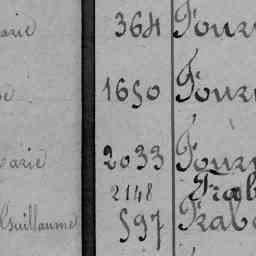 arie 364 Four
1650 Four
arie 2033 Four
2148 Frab
Guillaume 597 Frab